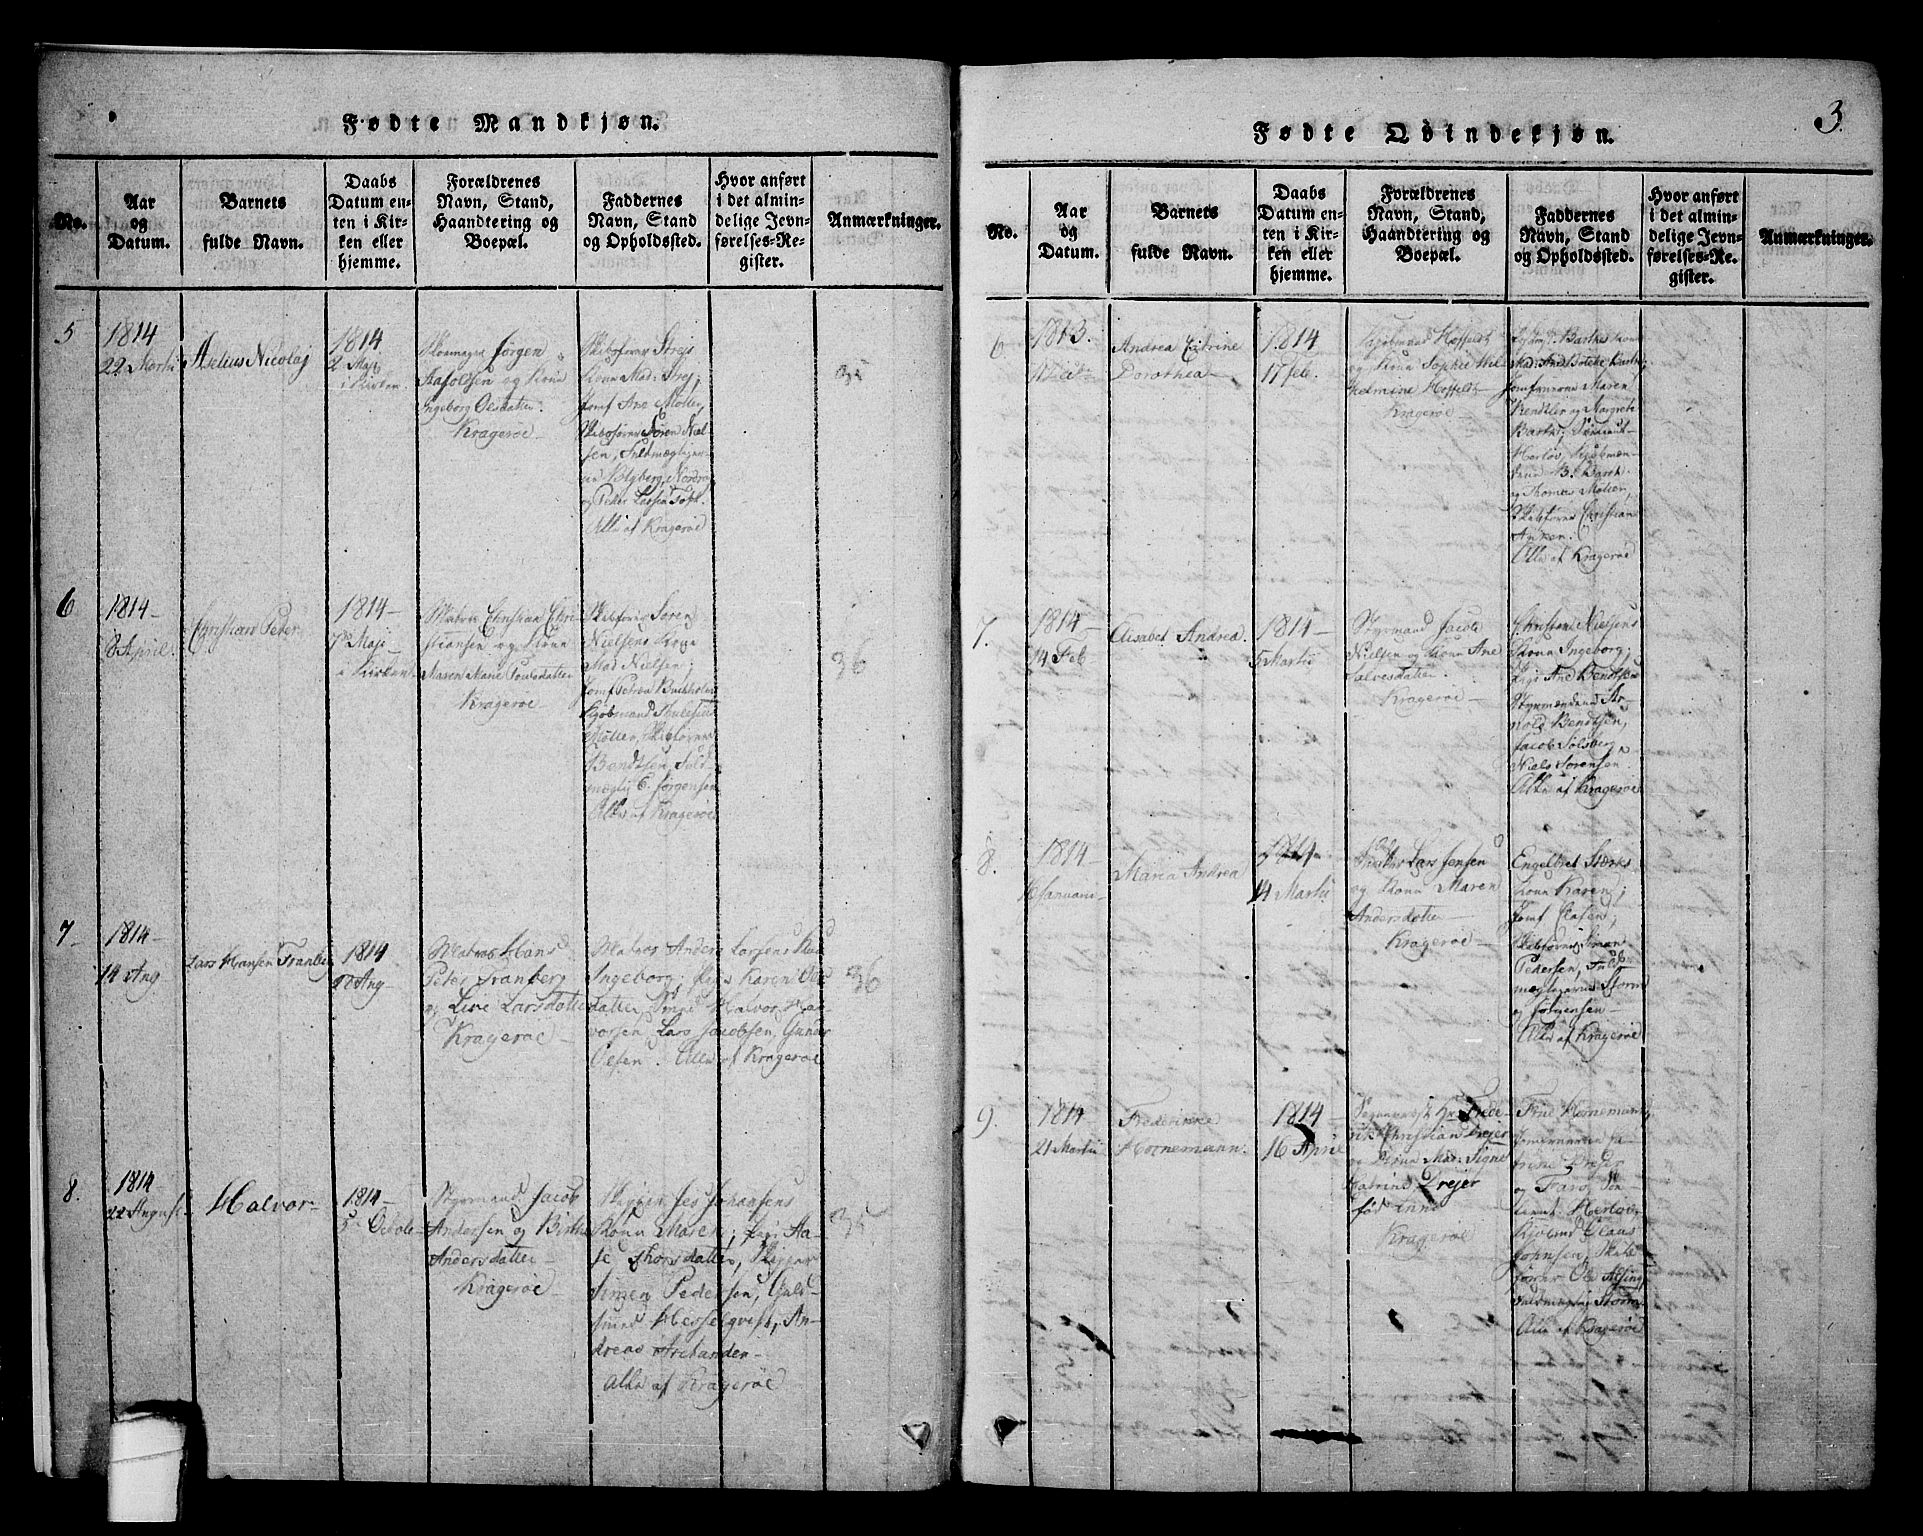 Fødte Mandkjøn.
No.
Aar
og
Datum.
Barnets
fulde Navn.
Daabs
Datum en-
ten i Kir-
ken eller
hjemme.
Forældrenes
Navn, Stand,
Haandtering og
Boepæl.
Faddernes
Navn, Stand
og Opholdssted.
Hvor anført
i det almin-
delige Jevn-
førelses-Re-
gister.
Anmærkninger.
5
1814
22 Martii
Nicolaj
1814
2 Maji
i Kirken
Skomager Jørgen
og Kone
Ingeborg Olsdatter.
Kragerøe
Skibsfører Strej
Kone Mad: Strej;
Jomf Ane Møller,
Skibsfører Søren Niel-
sen, Fuldmægtigen
og Peter Larsen
Alle af Kragerøe
35
6
1814
8 April
Christian Peder
1814
7de Maji
i Kirken
Matros Christian Chri-
stiansen og Kone
Maren
Kragerøe
Skibsfører Søren
Nielsens Kone
Mad Nielsen;
Jomf Petrea Buchholm
Kjøbmand
Møller, Skibsfører
Bendtsen, Fuld-
mægtig C. Jørgensen
Alle af Kragerøe
36
7
1814
14 Aug
Lars Hansen Tranberg
1814
Aug
Matros Hans
Peter Tranberg
og Live Larsdatter
Kragerøe
Matros Anders Larsens
Ingeborg; Pigen Karen Ols
datter, Halvor Hal-
vorsen, Lars Jacobsen, Gunder
Olsen. Alle af Kragerøe
36
8.
1814
22 August
Halvor
1814
5 Octobr
Styrmand Jacob
Andersen og
Andersdatter
Kragerøe
Skipper Jes Johansens
Kone Maren; Pige Aa-
se Thorsdatter, Skipper
Simen Pedersen, Guld-
smed Hesselqvist, An-
dreas
Alle af Kragerøe
35
3.
Fødte Qvindekjøn.
No.
Aar
og
Datum.
Barnets
fulde Navn.
Daabs
Datum en-
ten i Kir-
ken eller
hjemme.
Forældrenes
Navn, Stand,
Haandtering og
Boepæl.
Faddernes
Navn, Stand
og Opholdssted.
Hvor anført
i det almin-
delige Jevn-
førelses-Re-
gister.
Anmærkninger.
6
1813.
Andrea
Dorothea
1814
17 Feb.
Kjøbmand Hoffeldt
og Kone Sophie Wil-
helmine Hoffeldt
Kragerøe
Barths Kone
Jomfruerne Maren
og Margrete
Barth;
Herløv, Kjøbmæn-
dene B. Barth
og Thomas Møller,
Skibsfører Christian
Anken.
Alle af Kragerøe
7.
1814
14 Feb
Elisabet Andrea
1814
5 Martii
Styrmand Jacob
Nielsen og Kone Ane
Salvesdatter
Kragerøe
Christen Nielsens
Kone Ingeborg;
Pige Ane Bendtsen
Styrmændene Ar-
nold Bendtsen,
Jacob Solberg,
Niels Sørensen.
Alle af Kragerøe
8.
1814
Januari
Maria Andrea
1814
14 Martii
Lars Jensen
og Kone Maren
Andersdatter
Kragerøe
Engelbret Stærks
Kone Karen;
Jomf Clasen;
Skibsfører Simon
Pedersen, Fuld-
mægtigerne Storm
og Jørgensen
Alle af Kragerøe
9.
1814
21 Martii
Frederikke
Hornemann.
1814
16 April
Hr Frede-
rik Christian Drejer
og Kone Mad: Signe
Katrine Drejer
fød Inne
Kragerøe
Frue Hornemann,
Jomfruerne Ka-
trine Drejer
og Faro,
Herløv,
Kjøbmd Claus
Johnsen, Skibs
fører Ole Alsing,
Fuldmægtig Storm
Alle af Kragerøe